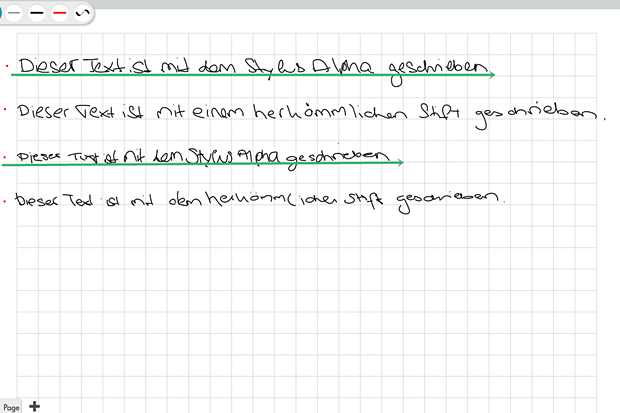 Dieser Text ist mit dem Stylus Alpha geschrieben
Dieser Text ist mit einem herkömmlichen Stift geschrieben.
Dieser Text ist mit dem Stylus Alpha geschrieben
Dieser Text ist mit dem herkömmlichen Stift geschrieben.
Page